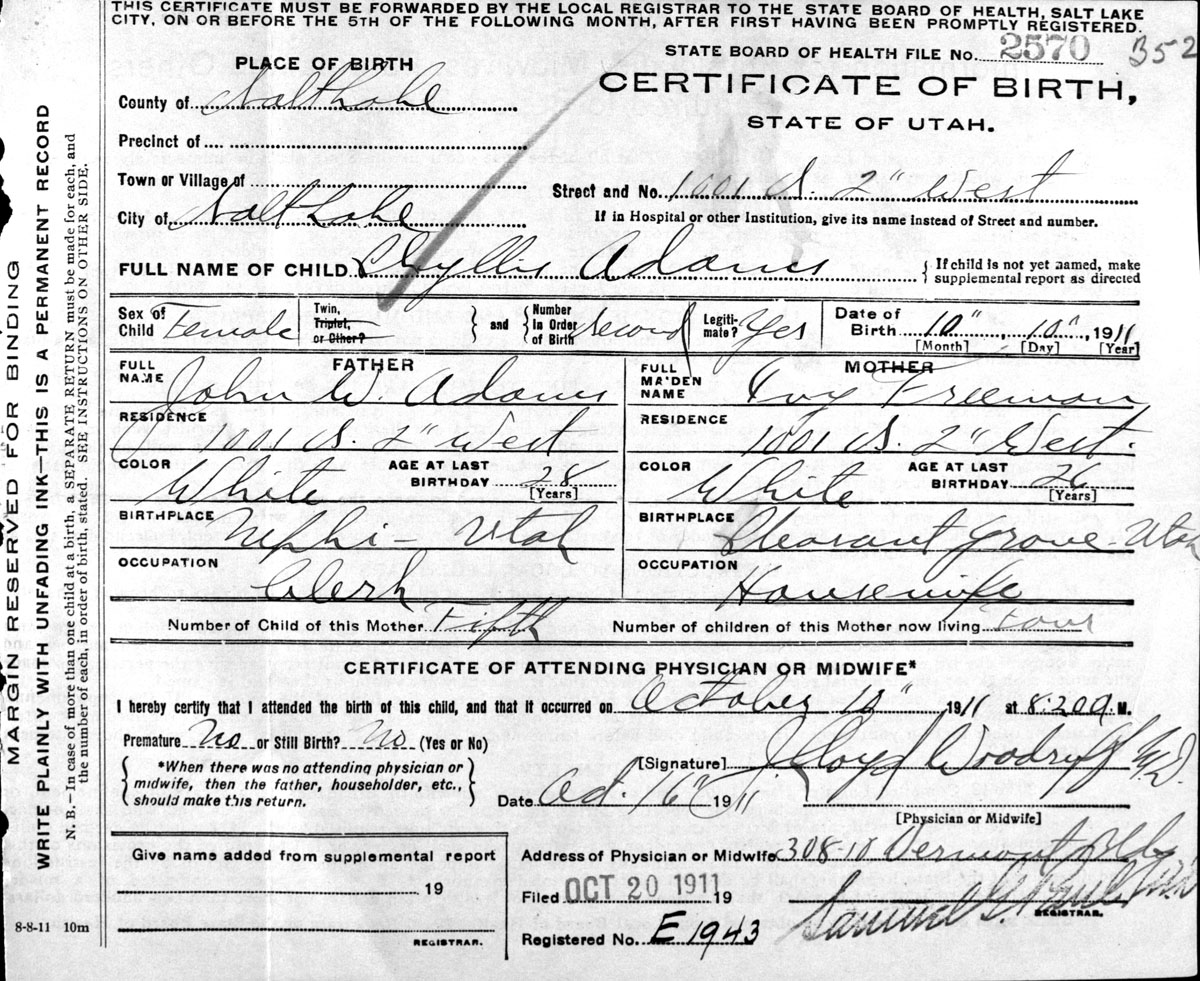 THIS CERTIFICATE MUST BE FORWARDED BY THE LOCAL REGISTRAR TO THE STATE BOARD OF HEALTH, SALT LAKE
CITY, ON OR BEFORE THE 5TH OF THE FOLLOWING MONTH, AFTER FIRST HAVING BEEN PROMPTLY REGISTERED.
STATE BOARD OF HEALTH FILE No. 2570 B52
CERTIFICATE OF BIRTH,
STATE OF UTAH.
PLACE OF BIRTH
County of Salt Lake
Precinct of
Town or Village of
Street and No. 1001 S. 2" West
City of Salt Lake
If in Hospital or other Institution, give its name instead of Street and number.
FULL NAME OF CHILD Phyllis Adams { If child is not yet named, make
supplemental report as directed
Sex of Child Female Twin, Triplet, or Other? } and { Number in Order of Birth second Legiti-mate? Yes Date of Birth 10" 10" 1911
[Month] [Day] [Year]
FATHER MOTHER
FULL NAME John W. Adams FULL MAIDEN NAME Ivy Freeman
RESIDENCE 1001 S. 2" West RESIDENCE 1001 S. 2" West.
COLOR White AGE AT LAST BIRTHDAY 28 [Years] COLOR White AGE AT LAST BIRTHDAY 26 [Years]
BIRTHPLACE Nephi – Utah BIRTHPLACE Pleasant Grove Utah
OCCUPATION Clerk OCCUPATION Housewife
Number of Child of this Mother Fifth Number of children of this Mother now living Four
CERTIFICATE OF ATTENDING PHYSICIAN OR MIDWIFE*
I hereby certify that I attended the birth of this child, and that it occurred on October 10" 1911 at 8:20 a. M.
Premature No or Still Birth? No (Yes or No)
{ *When there was no attending physician or
midwife, then the father, householder, etc.,
should make this return. }
[Signature] Lloyd Woodruff M.D.
Date Oct. 16" 1911
[Physician or Midwife]
Give name added from supplemental report
19
REGISTRAR.
Address of Physician or Midwife 308-10 Vermont Bldg
Filed OCT 20 1911 19
Samuel G. Paul M.D.
REGISTRAR.
Registered No. E 1943
8-8-11 10m
MARGIN RESERVED FOR BINDING
WRITE PLAINLY WITH UNFADING INK—THIS IS A PERMANENT RECORD
N. B.—In case of more than one child at a birth, a SEPARATE RETURN must be made for each, and
the number of each, in order of birth, stated. SEE INSTRUCTIONS ON OTHER SIDE.